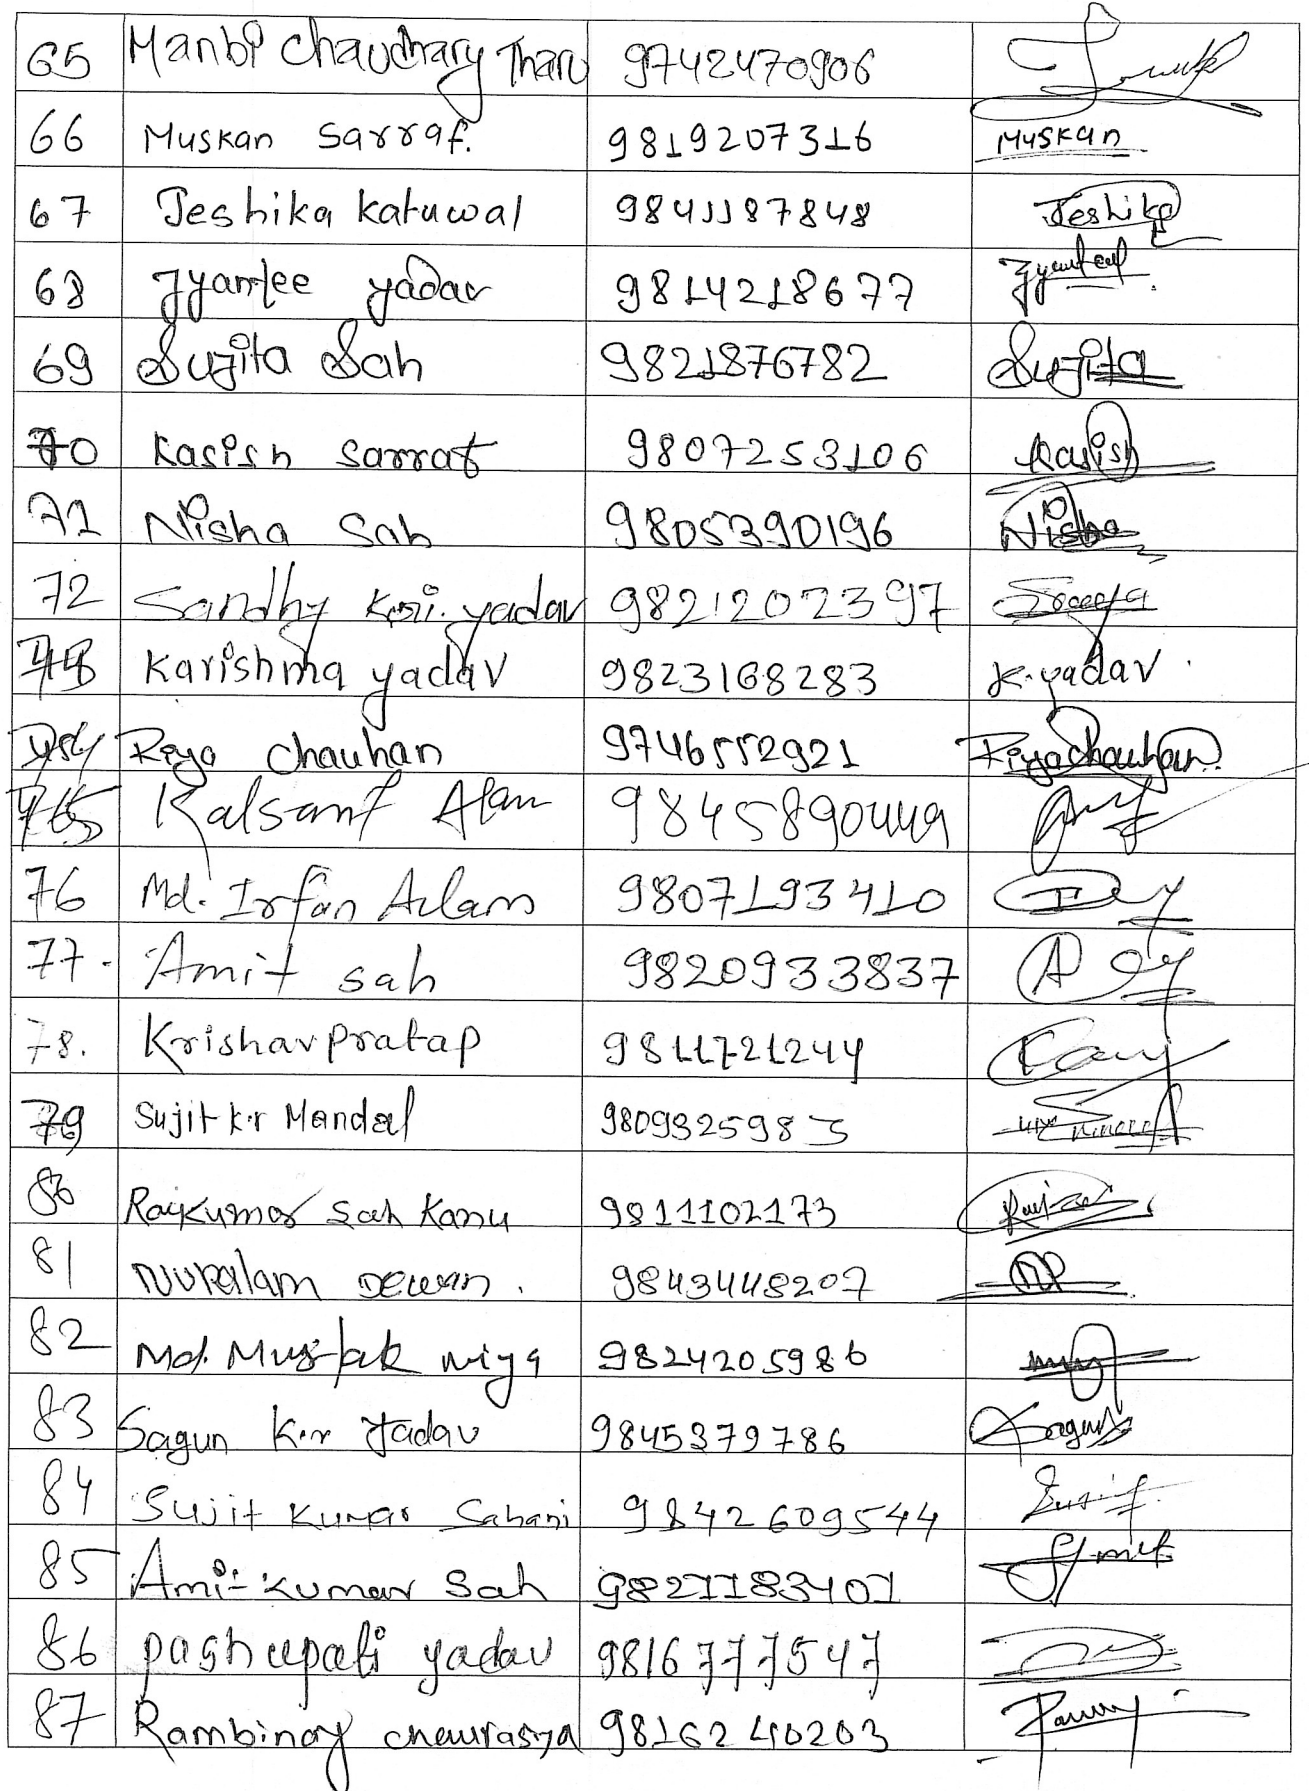 65 Manbi Chaudhary Tharu 9742470906
66 Muskan Sarraf. 9819207316 Muskan
67 Jeshika Katuwal 9841187848 Jeshika
68 Jyantee yadav 9814218677
69 Sujita Sah 9821876782 Sujita
70 Kasish Sarraf 9807253106 Kasish
71 Nisha Sah 9805390196 Nisha
72 Sandhy Kri. yadav 9821202397
Karishma yadav 9823168283 K.yadav
Riya Chauhan 9746552921 Riya chauhan
Alam 9845890449
76 Md. Irfan Aalam 9807193410
77. Amit sah 9820933837
78. Krishav Pratap 9811721244
79 Sujit kr Mandal 9809325983
80 Rajkumar Sah Kanu 9811102173
81 Nuralam Dewan. 9843448207
82 Md. Mustak miya 9824205986
83 Sagun Kr Yadav 9845379786 Sagun
84 Sujit Kumar Sahani 9842609544 Sujit
85 Amit Kumar Sah 9821183401 Amit
86 pashupati yadav 9816777547
87 Rambinay chaurasya 9816240203